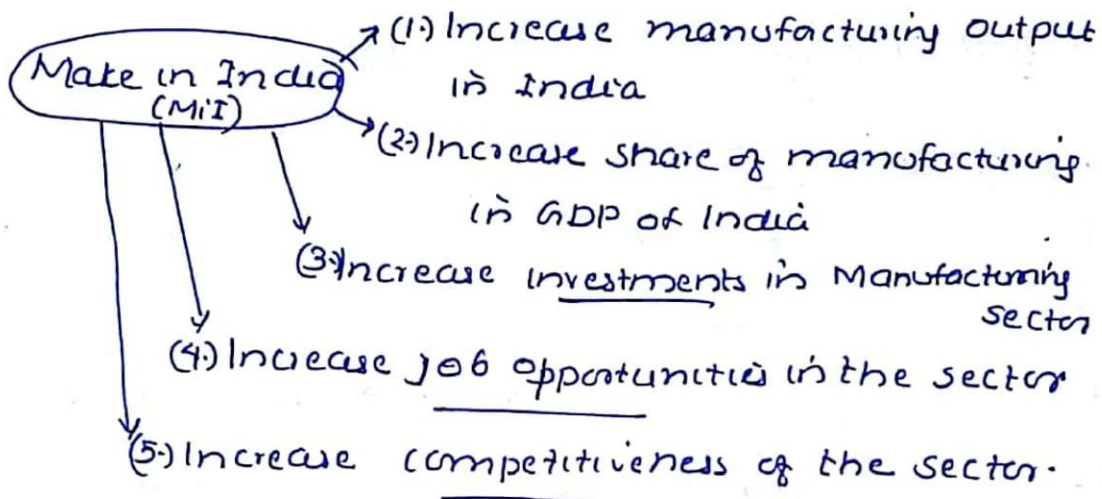 Make in India
(MiI)
(1.) Increase manufacturing output
in India
(2.) Increase share of manufacturing
in GDP of India
(3.) Increase investments in Manufacturing
sector
(4.) Increase job opportunities in the sector
(5.) Increase competitiveness of the sector.